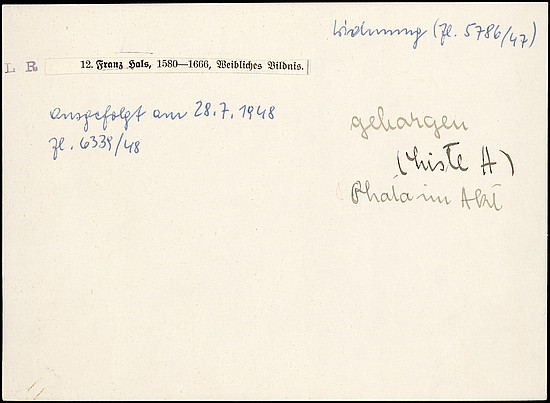 Widmung (Zl. 5786/47)
L R
12. Franz Hals, 1580—1666, Weibliches Bildnis.
ausgefolgt am 28.7.1948
Zl. 6339/48
geborgen
(Liste A)
Photo im Akt